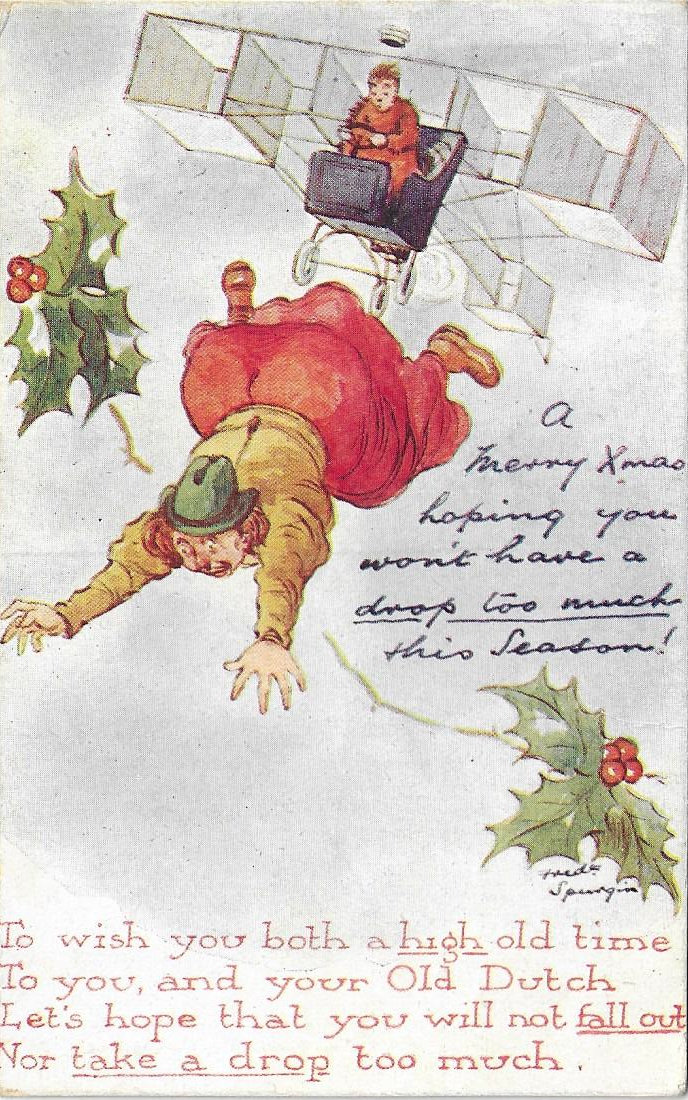 A
Merry Xmas
hoping you
won't have a
drop too much
this Season!
Fredk
Spurgin
To wish you both a high old time
To you, and your Old Dutch
Let's hope that you will not fall out
Nor take a drop too much.